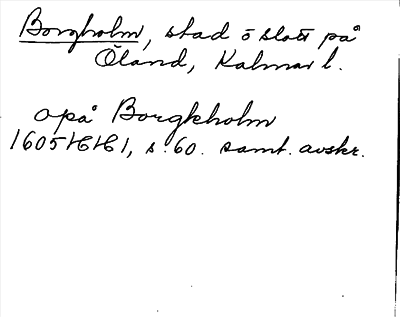 Borgholm, stad o slott på
Öland, Kalmar l.
opå Borgkholm
1605 16/6 1, s. 60. samt. avskr.